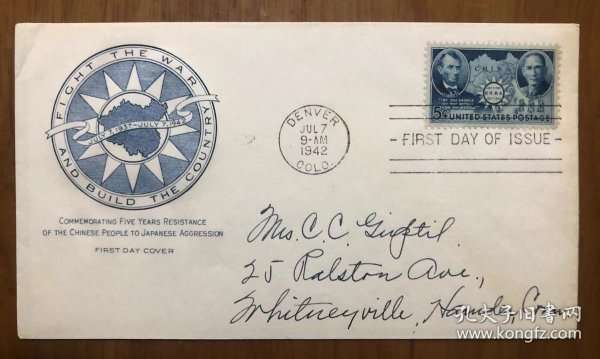 FIGHT THE WAR
AND BUILD THE COUNTRY
JULY 7 1937 - JULY 7 1942
COMMEMORATING FIVE YEARS RESISTANCE
OF THE CHINESE PEOPLE TO JAPANESE AGGRESSION
FIRST DAY COVER
DENVER
JUL 7
9-AM
1942
COLO.
CHINA
5¢ UNITED STATES POSTAGE
- FIRST DAY OF ISSUE -
Mrs. C. C.
25 Ralston Ave.,
Whitneyville, Hamden, Conn.
孔夫子旧书网
www.kongfz.com